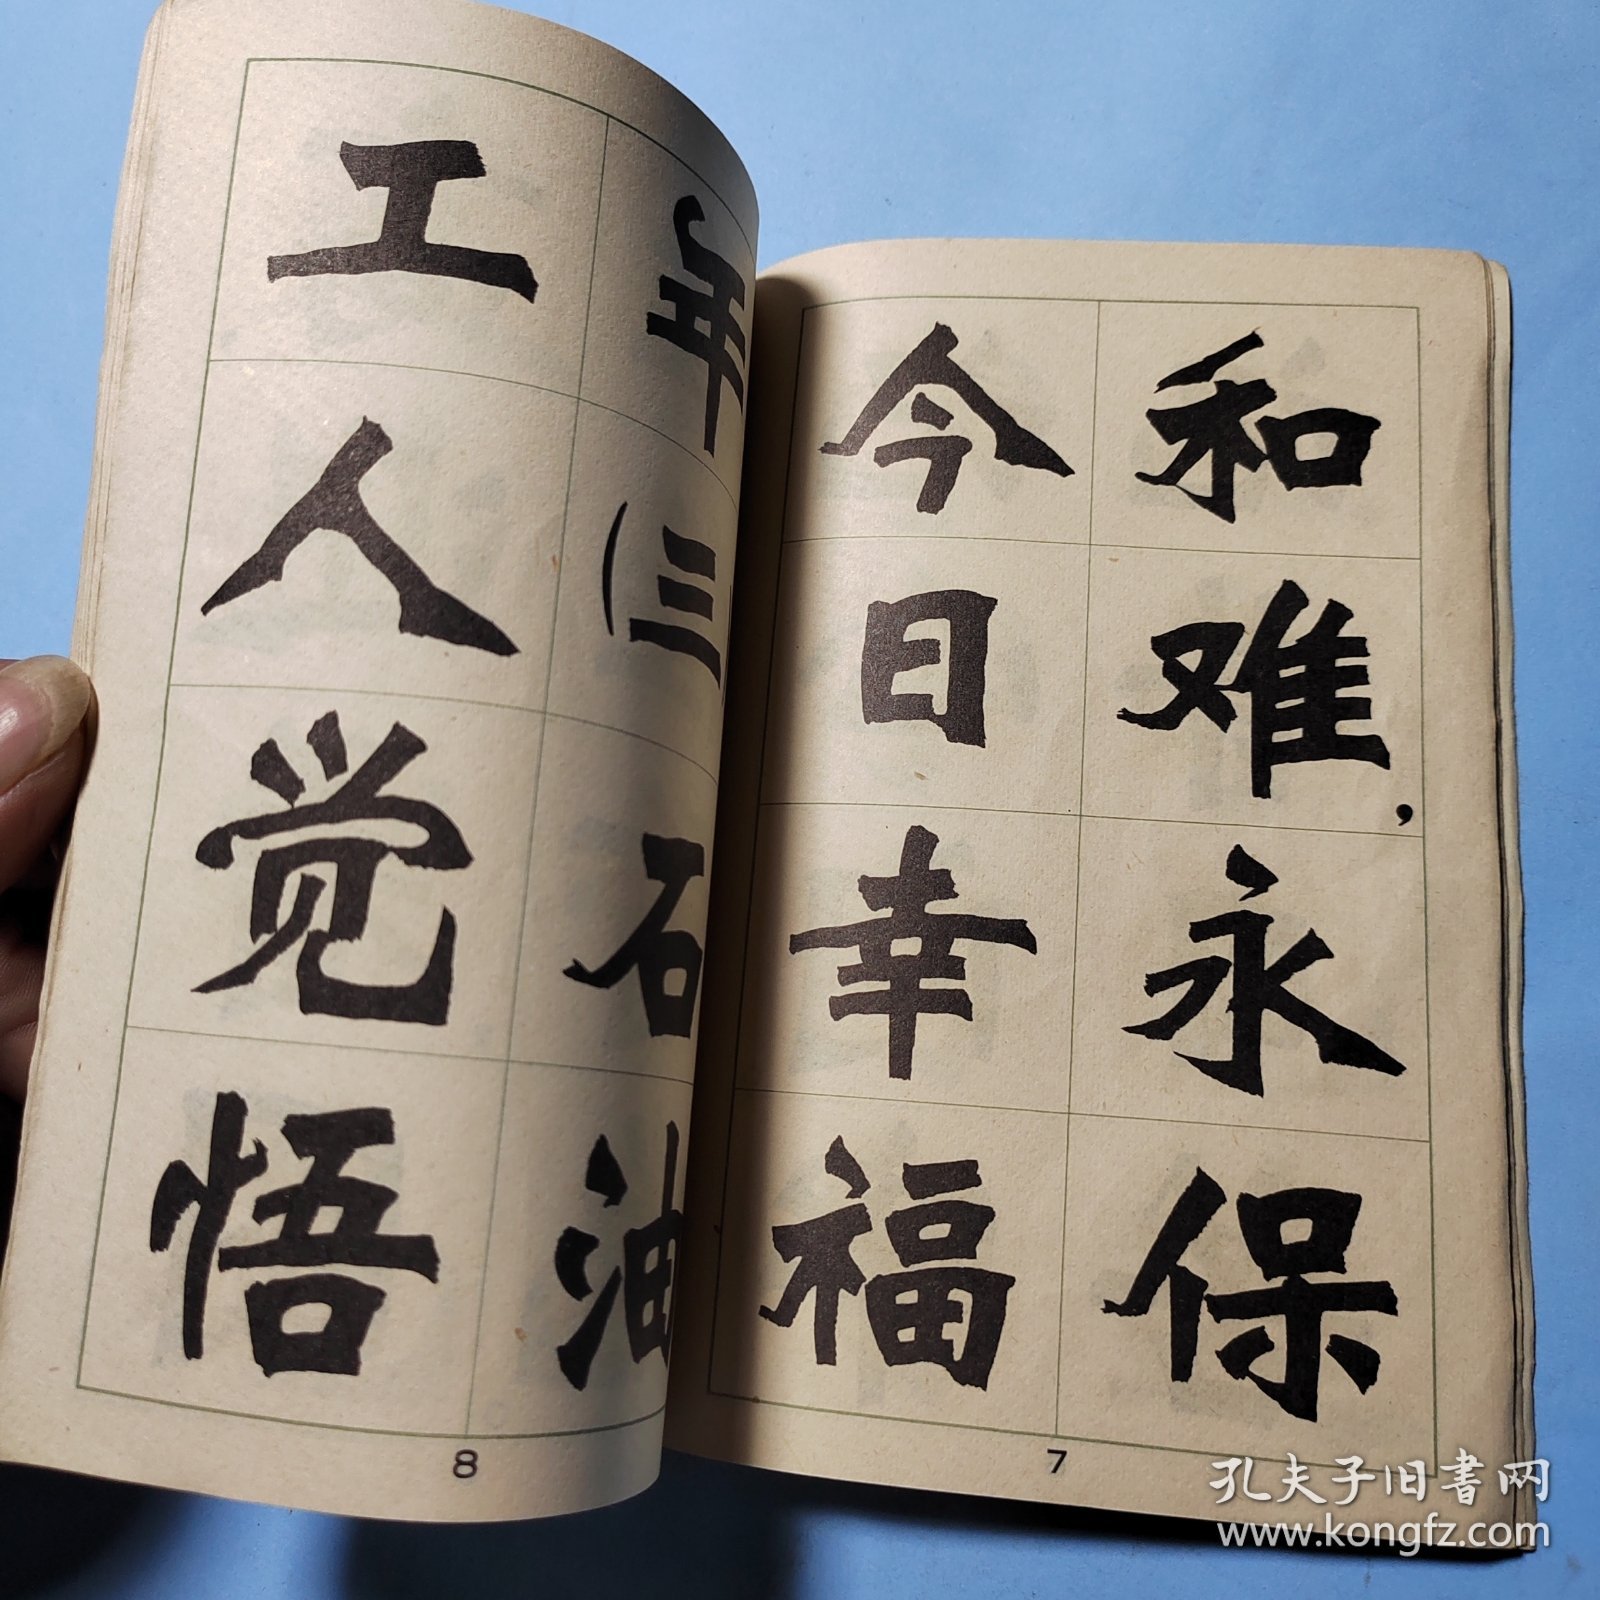 和难，永保
今日幸福
7
年(三石油
工人觉悟
8
孔夫子旧书网
www.kongfz.com